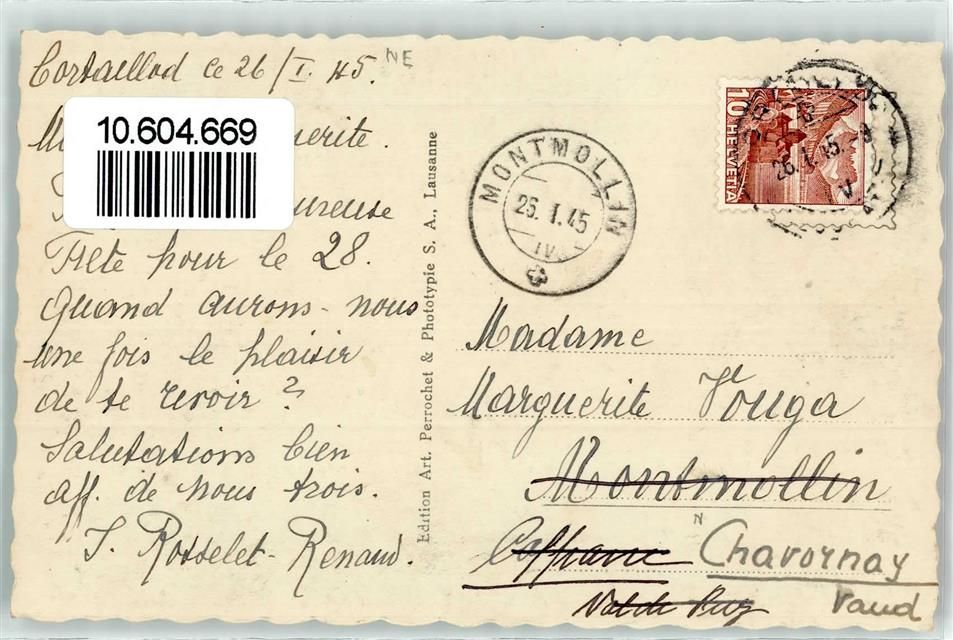 Cortaillod ce 26/I. 45.
NE
10.604.669
uerite.
ureuse
Fête pour le 28.
Quand aurons-nous
une fois le plaisir
de te revoir ?
Salutations bien
aff. de nous trois.
J. Rosselet-Renaud.
Edition Art. Perrochet & Phototypie S. A., Lausanne
MONTMOLLIN
26.I.45
10 HELVETIA
26.I.45
Madame
Marguerite Vouga
Montmollin
Coffrane Chavornay
Val de Ruz Vaud